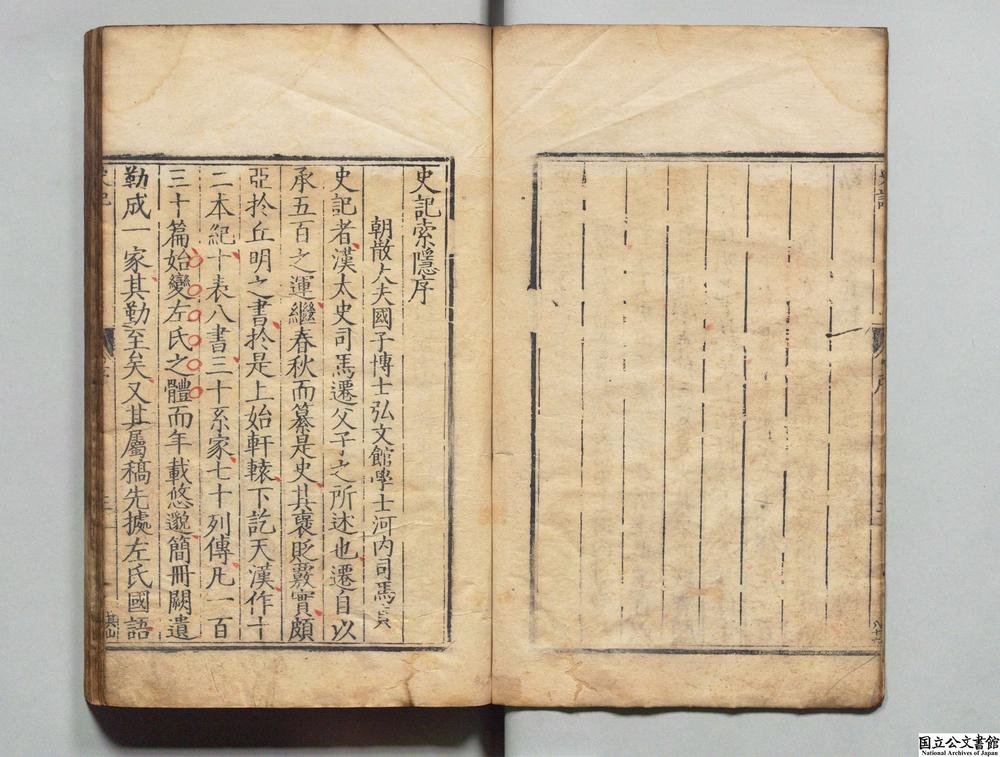 史記索隱序
朝散大夫國子博士弘文館學士河内司馬貞
史記者漢太史司馬遷父子之所述也遷自以
承五百之運繼春秋而纂是史其襃貶覈實頗
亞扵丘明之書扵是上始軒轅下訖天漢作十
二本紀十表八書三十系家七十列傳凡一百
三十篇始變左氏之體而年載悠邈簡冊闕遺
勒成一家其勤至矣又其屬稿先據左氏國語
国立公文書館
National Archives of Japan